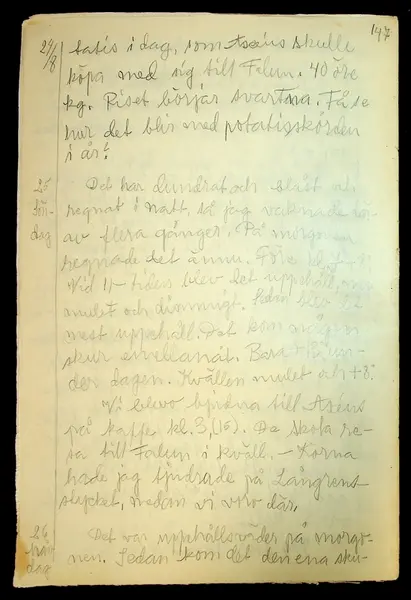 147
24/8
tatis i dag, som Aséns skulle
köpa med sig till Falun. 40 öre
kg. Riset börjar svartna. Få se
hur det blir med potatisskörden
i år!
25 Sön-dag
Det har dundrat och blåst och
regnat i natt, så jag vaknade
av flera gånger. På morgonen
regnade det ännu. Före kl.
Vid 11-tiden blev det uppehåll,
mulet och dimmigt. Sedan blev det
mest uppehåll. Det kom någon
skur emellanåt. Bara + un-
der dagen. Kvällen mulet och +8°
Vi blevo bjudna till Aséns
på kaffe kl. 3, (15). De skola re-
sa till Falun i kväll. - Korna
hade jag tjudrade på Långrens-
stycket, medan vi voro där.
26 Mån-dag
Det var uppehållsväder på morgo-
nen. Sedan kom det den ena sku-